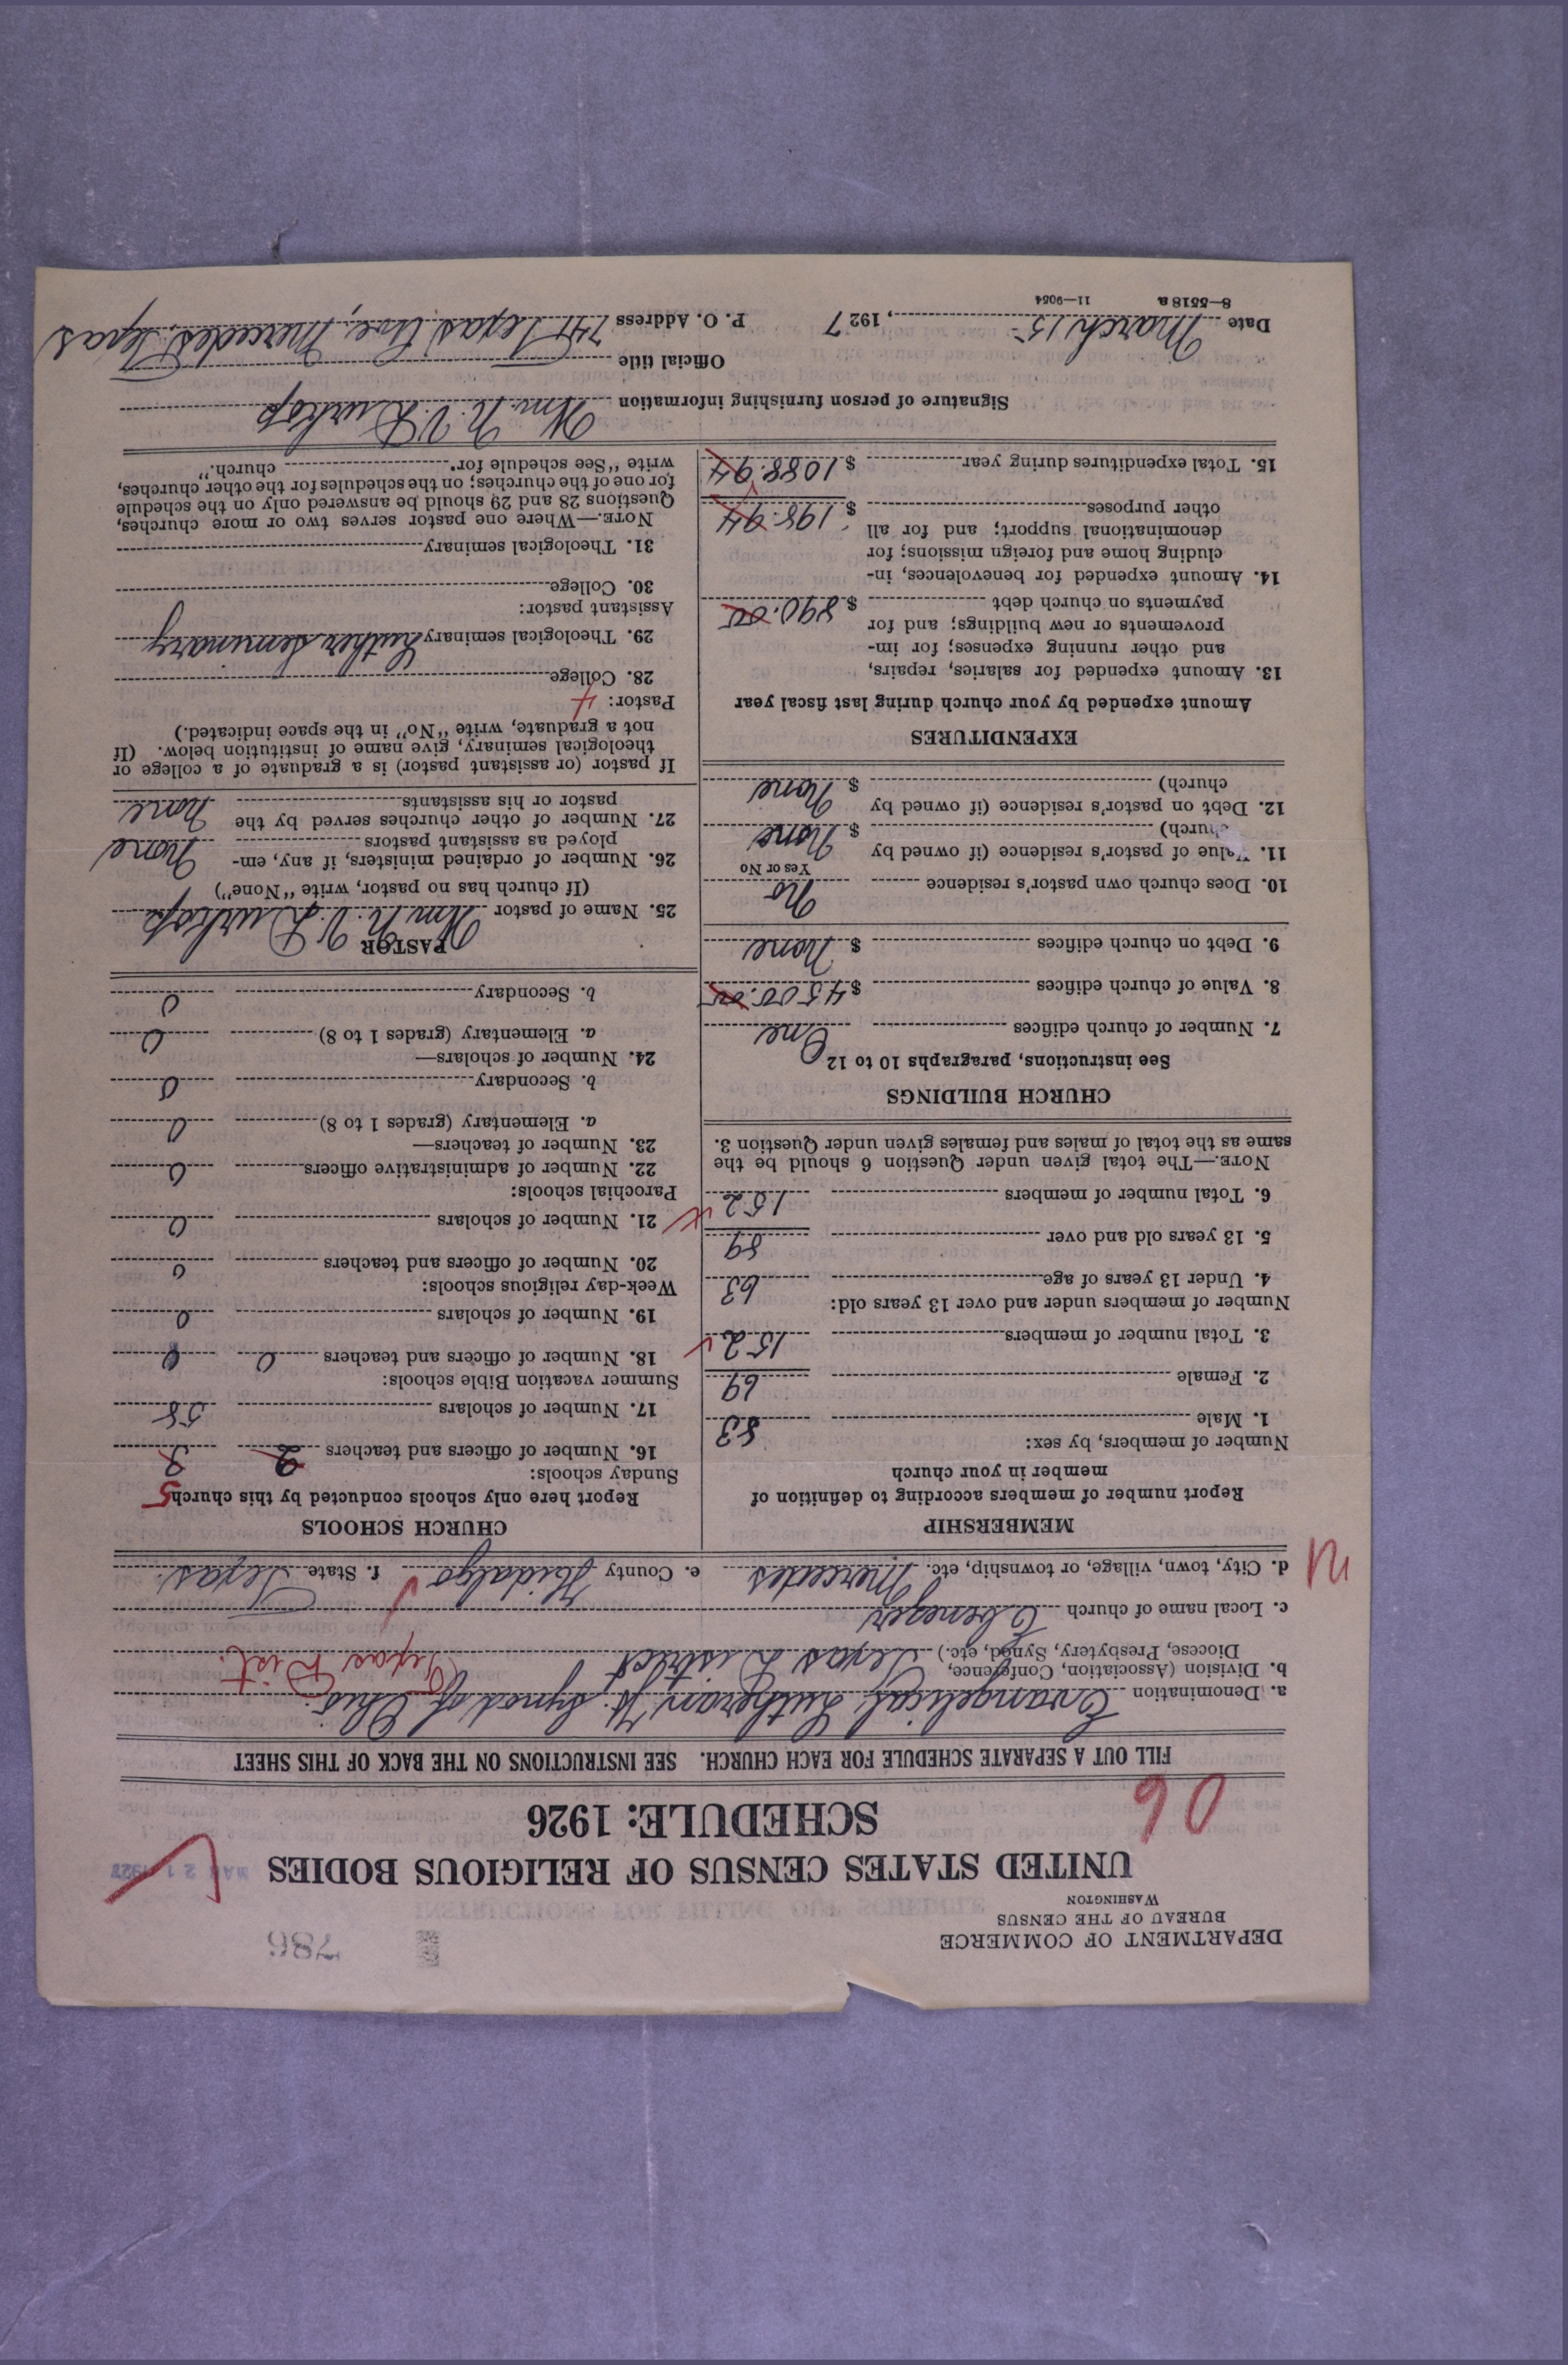 DEPARTMENT OF COMMERCE
BUREAU OF THE CENSUS
WASHINGTON
786
UNITED STATES CENSUS OF RELIGIOUS BODIES
SCHEDULE: 1926
90
FILL OUT A SEPARATE SCHEDULE FOR EACH CHURCH. SEE INSTRUCTIONS ON THE BACK OF THIS SHEET
a. Denomination Evangelical Lutheran Jt. Synod of Ohio
b. Division (Association, Conference,
Diocese, Presbytery, Synod, etc.) Texas District Texas Dist.
c. Local name of church Ebenezer
d. City, town, village, or township, etc. Mercedes e. County Hidalgo f. State Texas
MEMBERSHIP
Report number of members according to definition of
member in your church
Number of members, by sex:
1. Male 83
2. Female 69
3. Total number of members 152
Number of members under and over 13 years old:
4. Under 13 years of age 63
5. 13 years old and over 89
6. Total number of members 152
NOTE.—The total given under Question 6 should be the
same as the total of males and females given under Question 3.
CHURCH BUILDINGS
See instructions, paragraphs 10 to 12
7. Number of church edifices One
8. Value of church edifices $ 4500.00
9. Debt on church edifices $ None
10. Does church own pastor's residence No
Yes or No
11. Value of pastor's residence (if owned by
church) $ None
12. Debt on pastor's residence (if owned by
church) $ None
EXPENDITURES
Amount expended by your church during last fiscal year
13. Amount expended for salaries, repairs,
and other running expenses; for im-
provements or new buildings; and for
payments on church debt $ 890.00
14. Amount expended for benevolences, in-
cluding home and foreign missions; for
denominational support; and for all
other purposes $ 198.94
15. Total expenditures during year $ 1088.94
CHURCH SCHOOLS
Report here only schools conducted by this church
5
Sunday schools:
16. Number of officers and teachers 2 3
17. Number of scholars 58
Summer vacation Bible schools:
18. Number of officers and teachers 0 0
19. Number of scholars 0
Week-day religious schools:
20. Number of officers and teachers 0
21. Number of scholars 0
Parochial schools:
22. Number of administrative officers 0
23. Number of teachers—
a. Elementary (grades 1 to 8) 0
b. Secondary 0
24. Number of scholars—
a. Elementary (grades 1 to 8) 0
b. Secondary 0
PASTOR
25. Name of pastor Wm. N. V. Durkop
(If church has no pastor, write "None")
26. Number of ordained ministers, if any, em-
ployed as assistant pastors None
27. Number of other churches served by the
pastor or his assistants None
If pastor (or assistant pastor) is a graduate of a college or
theological seminary, give name of institution below. (If
not a graduate, write "No" in the space indicated.)
Pastor: 4
28. College
29. Theological seminary Luther Seminary
Assistant pastor:
30. College
31. Theological seminary
NOTE.—Where one pastor serves two or more churches,
Questions 28 and 29 should be answered only on the schedule
for one of the churches; on the schedules for the other churches,
write "See schedule for church."
Signature of person furnishing information Wm. N. V. Durkop
Official title
Date March 15, 1927 P. O. Address 744 Texas Ave, Mercedes, Texas
8—5518 a 11—9054